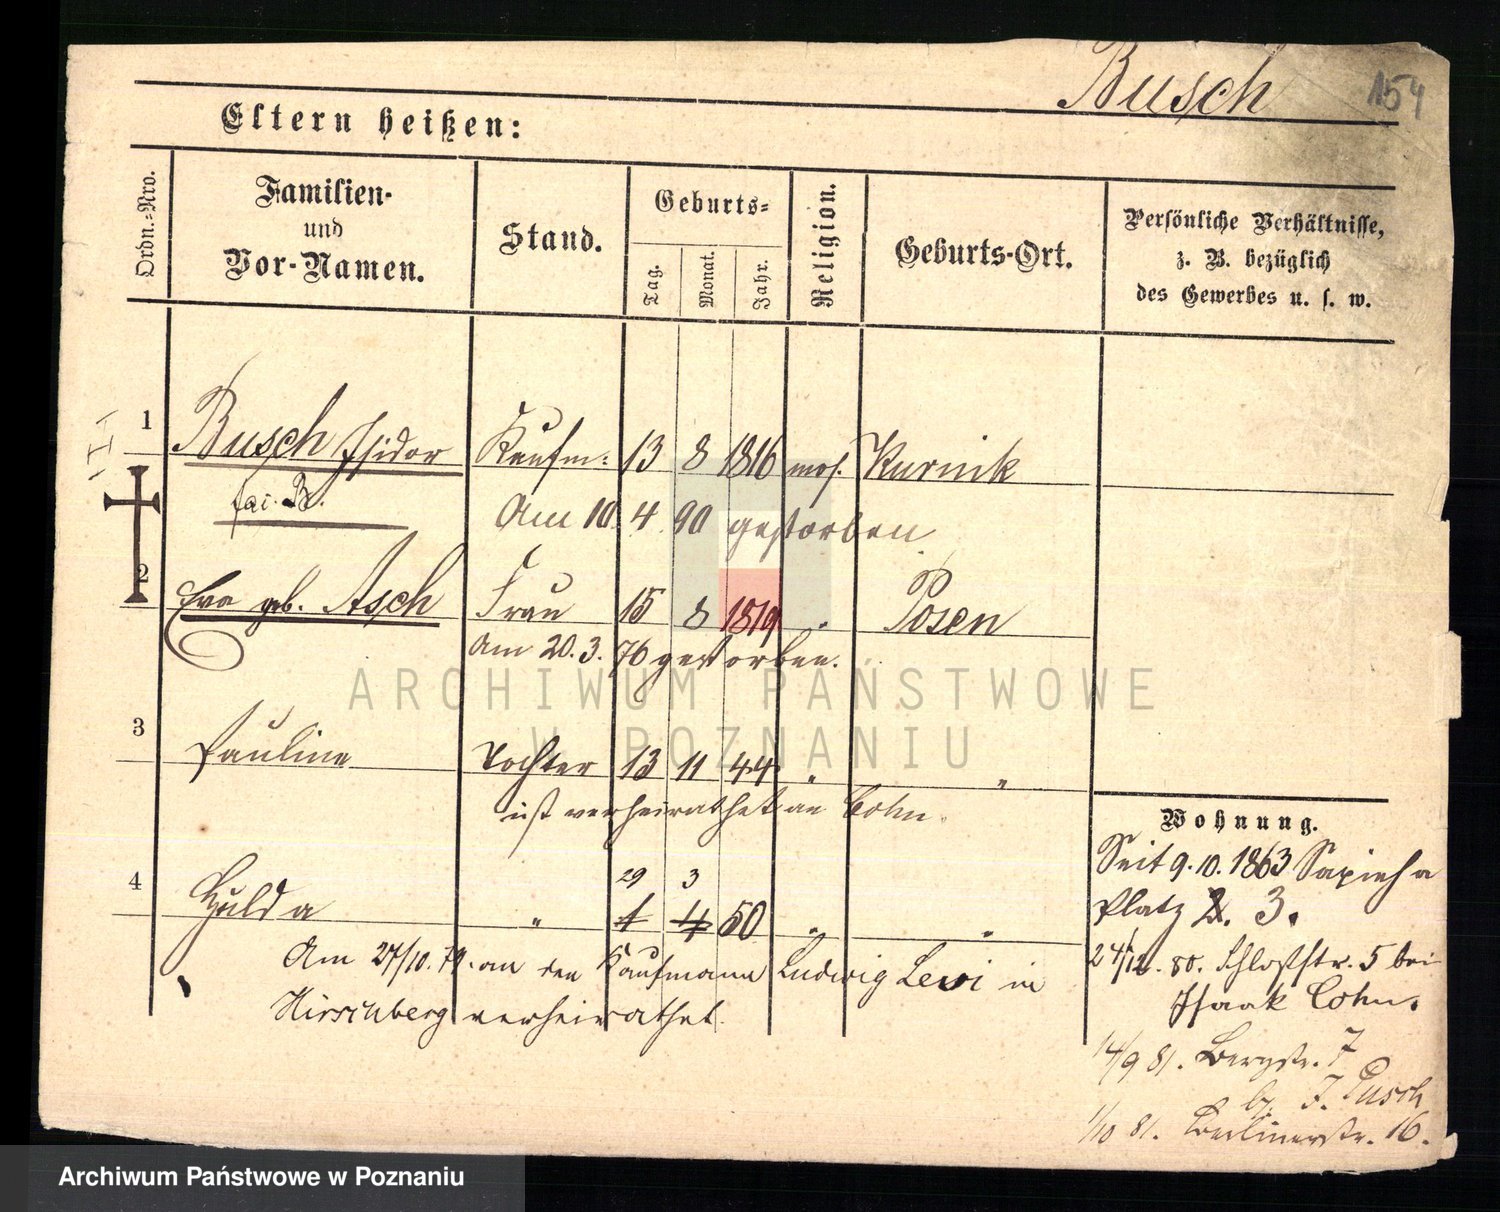 Busch 154
Eltern heißen:
Ordn.-Nro.
Familien-
und
Vor-Namen.
Stand.
Geburts-
Tag.
Monat.
Jahr.
Religion.
Geburts-Ort.
Persönliche Verhältnisse,
z. B. bezüglich
des Gewerbes u. s. w.
1 Busch Isidor Kaufm: 13 8 1816 mos. Kurnik
Am 10. 4. 90 gestorben
2 Eva geb. Asch Frau 15 8 1819 " Posen
Am 20. 3. 76 gestorben.
3 Pauline Tochter 13 11 44 " "
ist verheirathet an Cohn.
29 3
4 Hulda " 1 4 50 " "
Am 27/10. 79. an den Kaufmann Ludwig Lewi in
Hirschberg verheirathet.
Wohnung.
Seit 9. 10. 1863 Sapieha
Platz 2. 3.
24/12. 80. Schloßstr. 5 bei
Isaak Cohn.
14/9 81. Bergstr. 7
b. J. Busch
1/10 81. Berlinerstr. 16.
ARCHIWUM PAŃSTWOWE
W POZNANIU
Archiwum Państwowe w Poznaniu